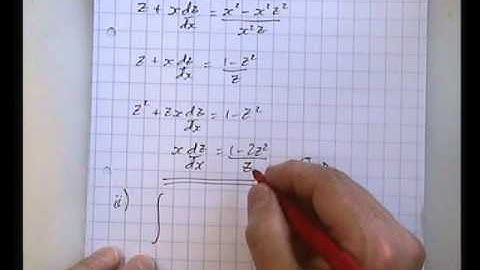 z + x dz/dx = x² - x²z² / x²z
z + x dz/dx = 1 - z² / z
z² + zx dz/dx = 1 - z²
x dz/dx = 1 - 2z² / z
ii) ∫